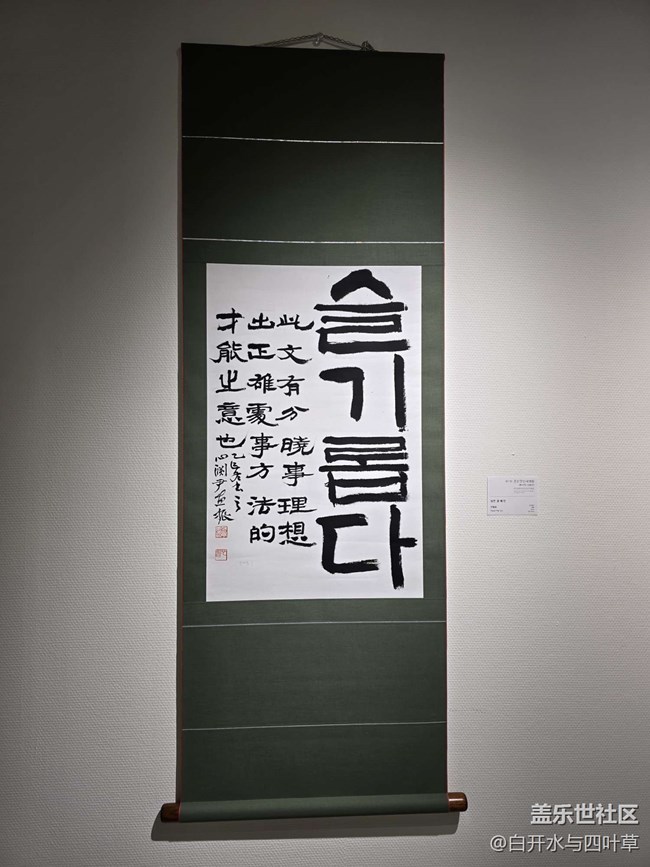 슬기롭다
此文有分曉事理想
出正確處事方法的
才能之意也
盖乐世社区
@白开水与四叶草